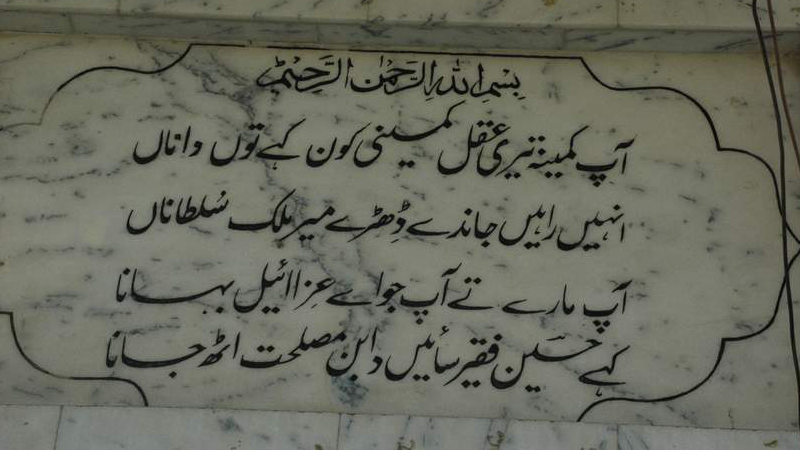 بِسْمِ اللهِ الرَّحْمٰنِ الرَّحِيْمِ
آپ کمینہ تیری عقل کمینی کون کہے توں داناں
انہیں راہیں جاندے ڈِھڑے میر ملک سُلطاناں
آپ مارے تے آپ جواے عِزرائیل بہانا
کہے حسین فقیر سائیں دا بن مصلحت اٹھ جانا